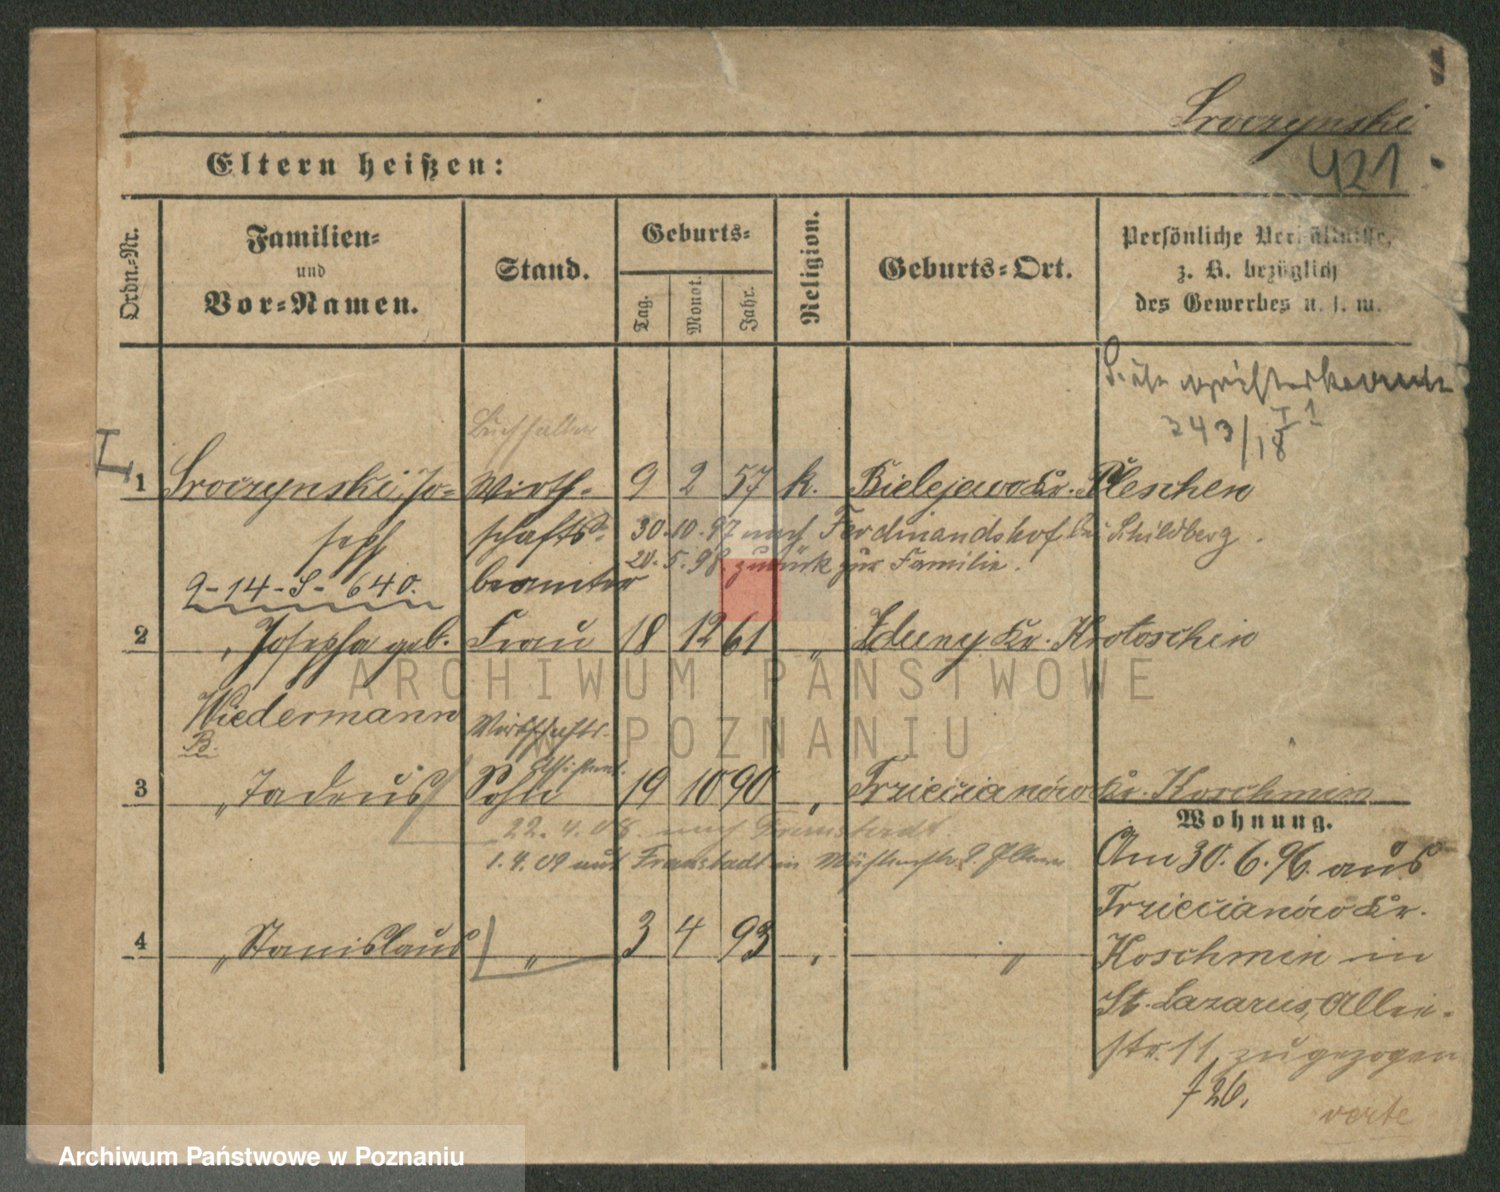 Sroczynski
421
Eltern heißen:
Ordn.-Nr.
Familien-
und
Vor-Namen.
Stand.
Geburts-
Tag.
Monat.
Jahr.
Religion.
Geburts-Ort.
Persönliche Verhältnisse,
z. B. bezüglich
des Gewerbes u. s. w.
243/18 I 1
Buchhalter
I
1 Sroczynski Jo- Wirth- 9 2 57 k. Bielejewo Kr. Pleschen
seph schafts- 30.10.97 nach Ferdinandshof bei Schildberg.
20.5.98. zurück zur Familie.
9-14-S-640. beamter
2 " Josepha geb. Frau 18 12 61 " Zduny Kr. Krotoschin
Wiedermann Wirthschafts-
B. Assistent.
3 " Tadeus Sohn 19 10 90 " Trzecianowo Kr. Koschmin
22.4.08. nach Fraustadt.
1.4.09 aus Fraustadt in
Wohnung.
Am 30.6.96. aus
Trzecianowo Kr.
4 " Stanislaus " 3 4 93 " "
Koschmin in
St. Lazarus, Allee-
str. 11 zugezogen
726.
verte
ARCHIWUM PAŃSTWOWE
W POZNANIU
Archiwum Państwowe w Poznaniu